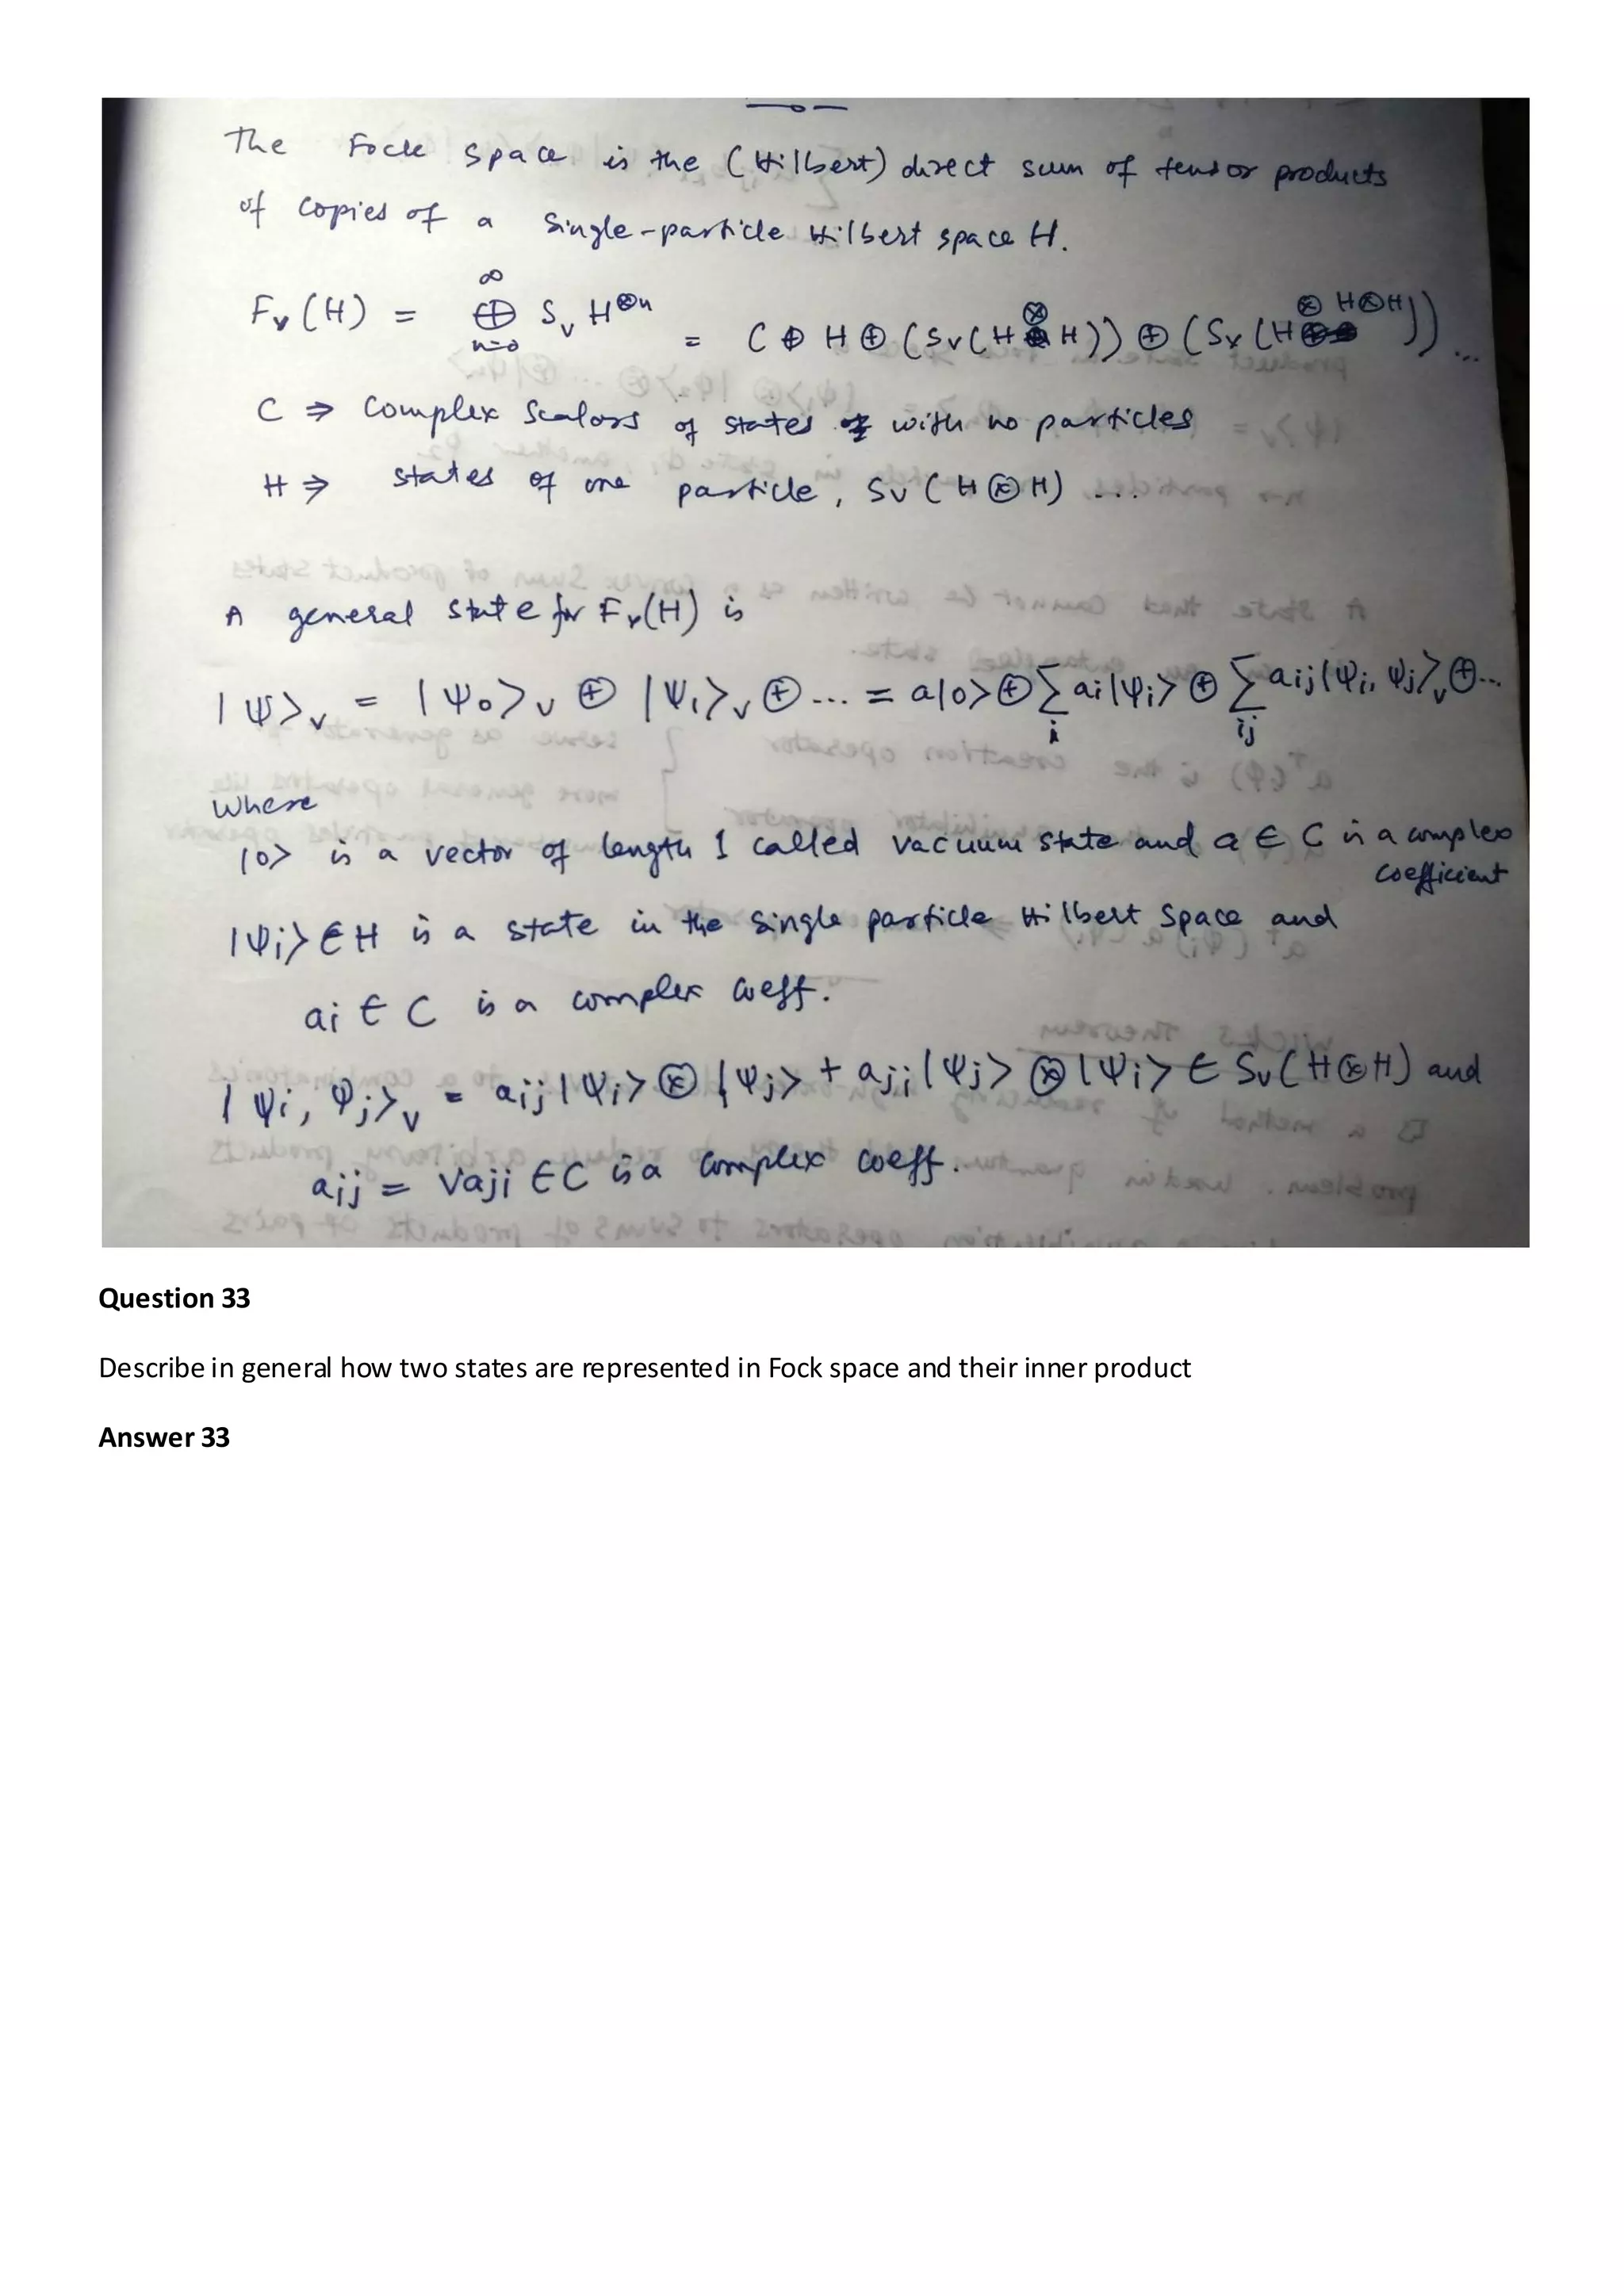 The Fock space is the (Hilbert) direct sum of tensor products
of copies of a single-particle Hilbert space H.
Fᵥ(H) = ⊕ₙ₌₀^∞ Sᵥ H^⊗n = C ⊕ H ⊕ (Sᵥ(H ⊗ H)) ⊕ (Sᵥ(H ⊗ H⊗H)) ...
C ⇒ Complex Scalars of states with no particles
H ⇒ states of one particle, Sᵥ(H⊗H) ...
A general state for Fᵥ(H) is
|Ψ>ᵥ = |Ψ₀>ᵥ ⊕ |Ψ₁>ᵥ ⊕ ... = a|0> ⊕ ∑ᵢ ai|Ψi> ⊕ ∑ᵢⱼ aij|Ψi, Ψj>ᵥ ⊕ ...
where
|0> is a vector of length 1 called vacuum state and a ∈ C is a complex
coefficient
|Ψi> ∈ H is a state in the single particle Hilbert Space and
ai ∈ C is a complex coeff.
|Ψi, Ψj>ᵥ = aij|Ψi> ⊗ |Ψj> + aji|Ψj> ⊗ |Ψi> ∈ Sᵥ(H⊗H) and
aij = vaji ∈ C is a complex coeff.
Question 33
Describe in general how two states are represented in Fock space and their inner product
Answer 33